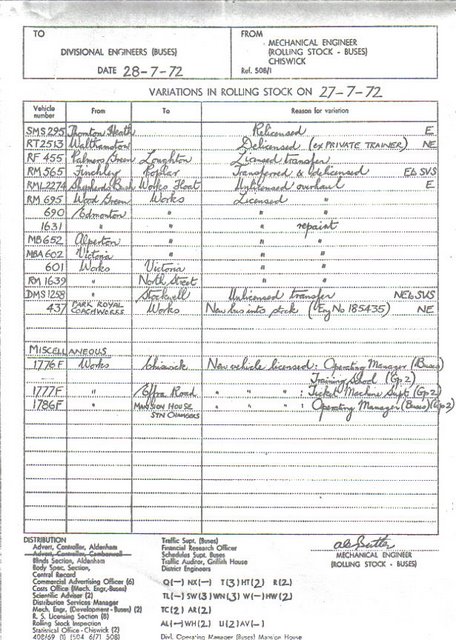 TO
DIVISIONAL ENGINEERS (BUSES)
DATE 28-7-72
FROM
MECHANICAL ENGINEER
(ROLLING STOCK - BUSES)
CHISWICK
Ref. 508/1
VARIATIONS IN ROLLING STOCK ON 27-7-72
Vehicle number From To Reason for variation
SMS 295 Thornton Heath Relicensed E
RT 2513 Walthamstow Delicensed (ex PRIVATE TRAINER) NE
RF 455 Palmers Green Loughton Licensed transfer
RM 565 Finchley Poplar Transferred & delicensed E to SVS
RML 2274 Shepherds Bush Works Float Unlicensed overhaul E
RM 695 Wood Green Works Licensed "
690 Edmonton " " "
1631 " " " repaint
MB 652 Alperton " " "
MBA 602 Victoria " " "
601 Works Victoria " "
RM 1639 " North Street " "
DMS 1258 " Stockwell Unlicensed transfer NE to SVS
437 PARK ROYAL COACHWORKS Works New bus into stock (Eng No 185435) NE
MISCELLANEOUS
1776F Works Chiswick New vehicle licensed: Operating Manager (Buses)
Training School (Gp 2)
1777F " Effra Road " " " : Ticket Machine Supt (Gp 2)
1786F " MANSION HOUSE STN CHAMBERS " " " : Operating Manager (Buses) (Gp 2)
DISTRIBUTION
Advert. Controller, Aldenham
Advert. Controller, Camberwell
Blinds Section, Aldenham
Body Spec. Section,
Central Record
Commercial Advertising Officer (6)
Costs Office (Mech. Engr.-Buses)
Scientific Adviser (2)
Distribution Services Manager
Mech. Engr. (Development-Buses) (2)
R. S. Licensing Section (8)
Rolling Stock Inspection
Statistical Office - Chiswick (2)
Traffic Supt. (Buses)
Financial Research Officer
Schedules Supt. Buses
Traffic Auditor, Griffith House
District Engineers
Q(-) NX(-) T(3) HT(2) R(2)
TL(-) SW(3) WN(3) W(-) HW(2)
TC(2) AR(2)
AL(-) WH(2) U(2) AV(-)
Divl. Operating Manager (Buses) Mansion House
MECHANICAL ENGINEER
(ROLLING STOCK - BUSES)